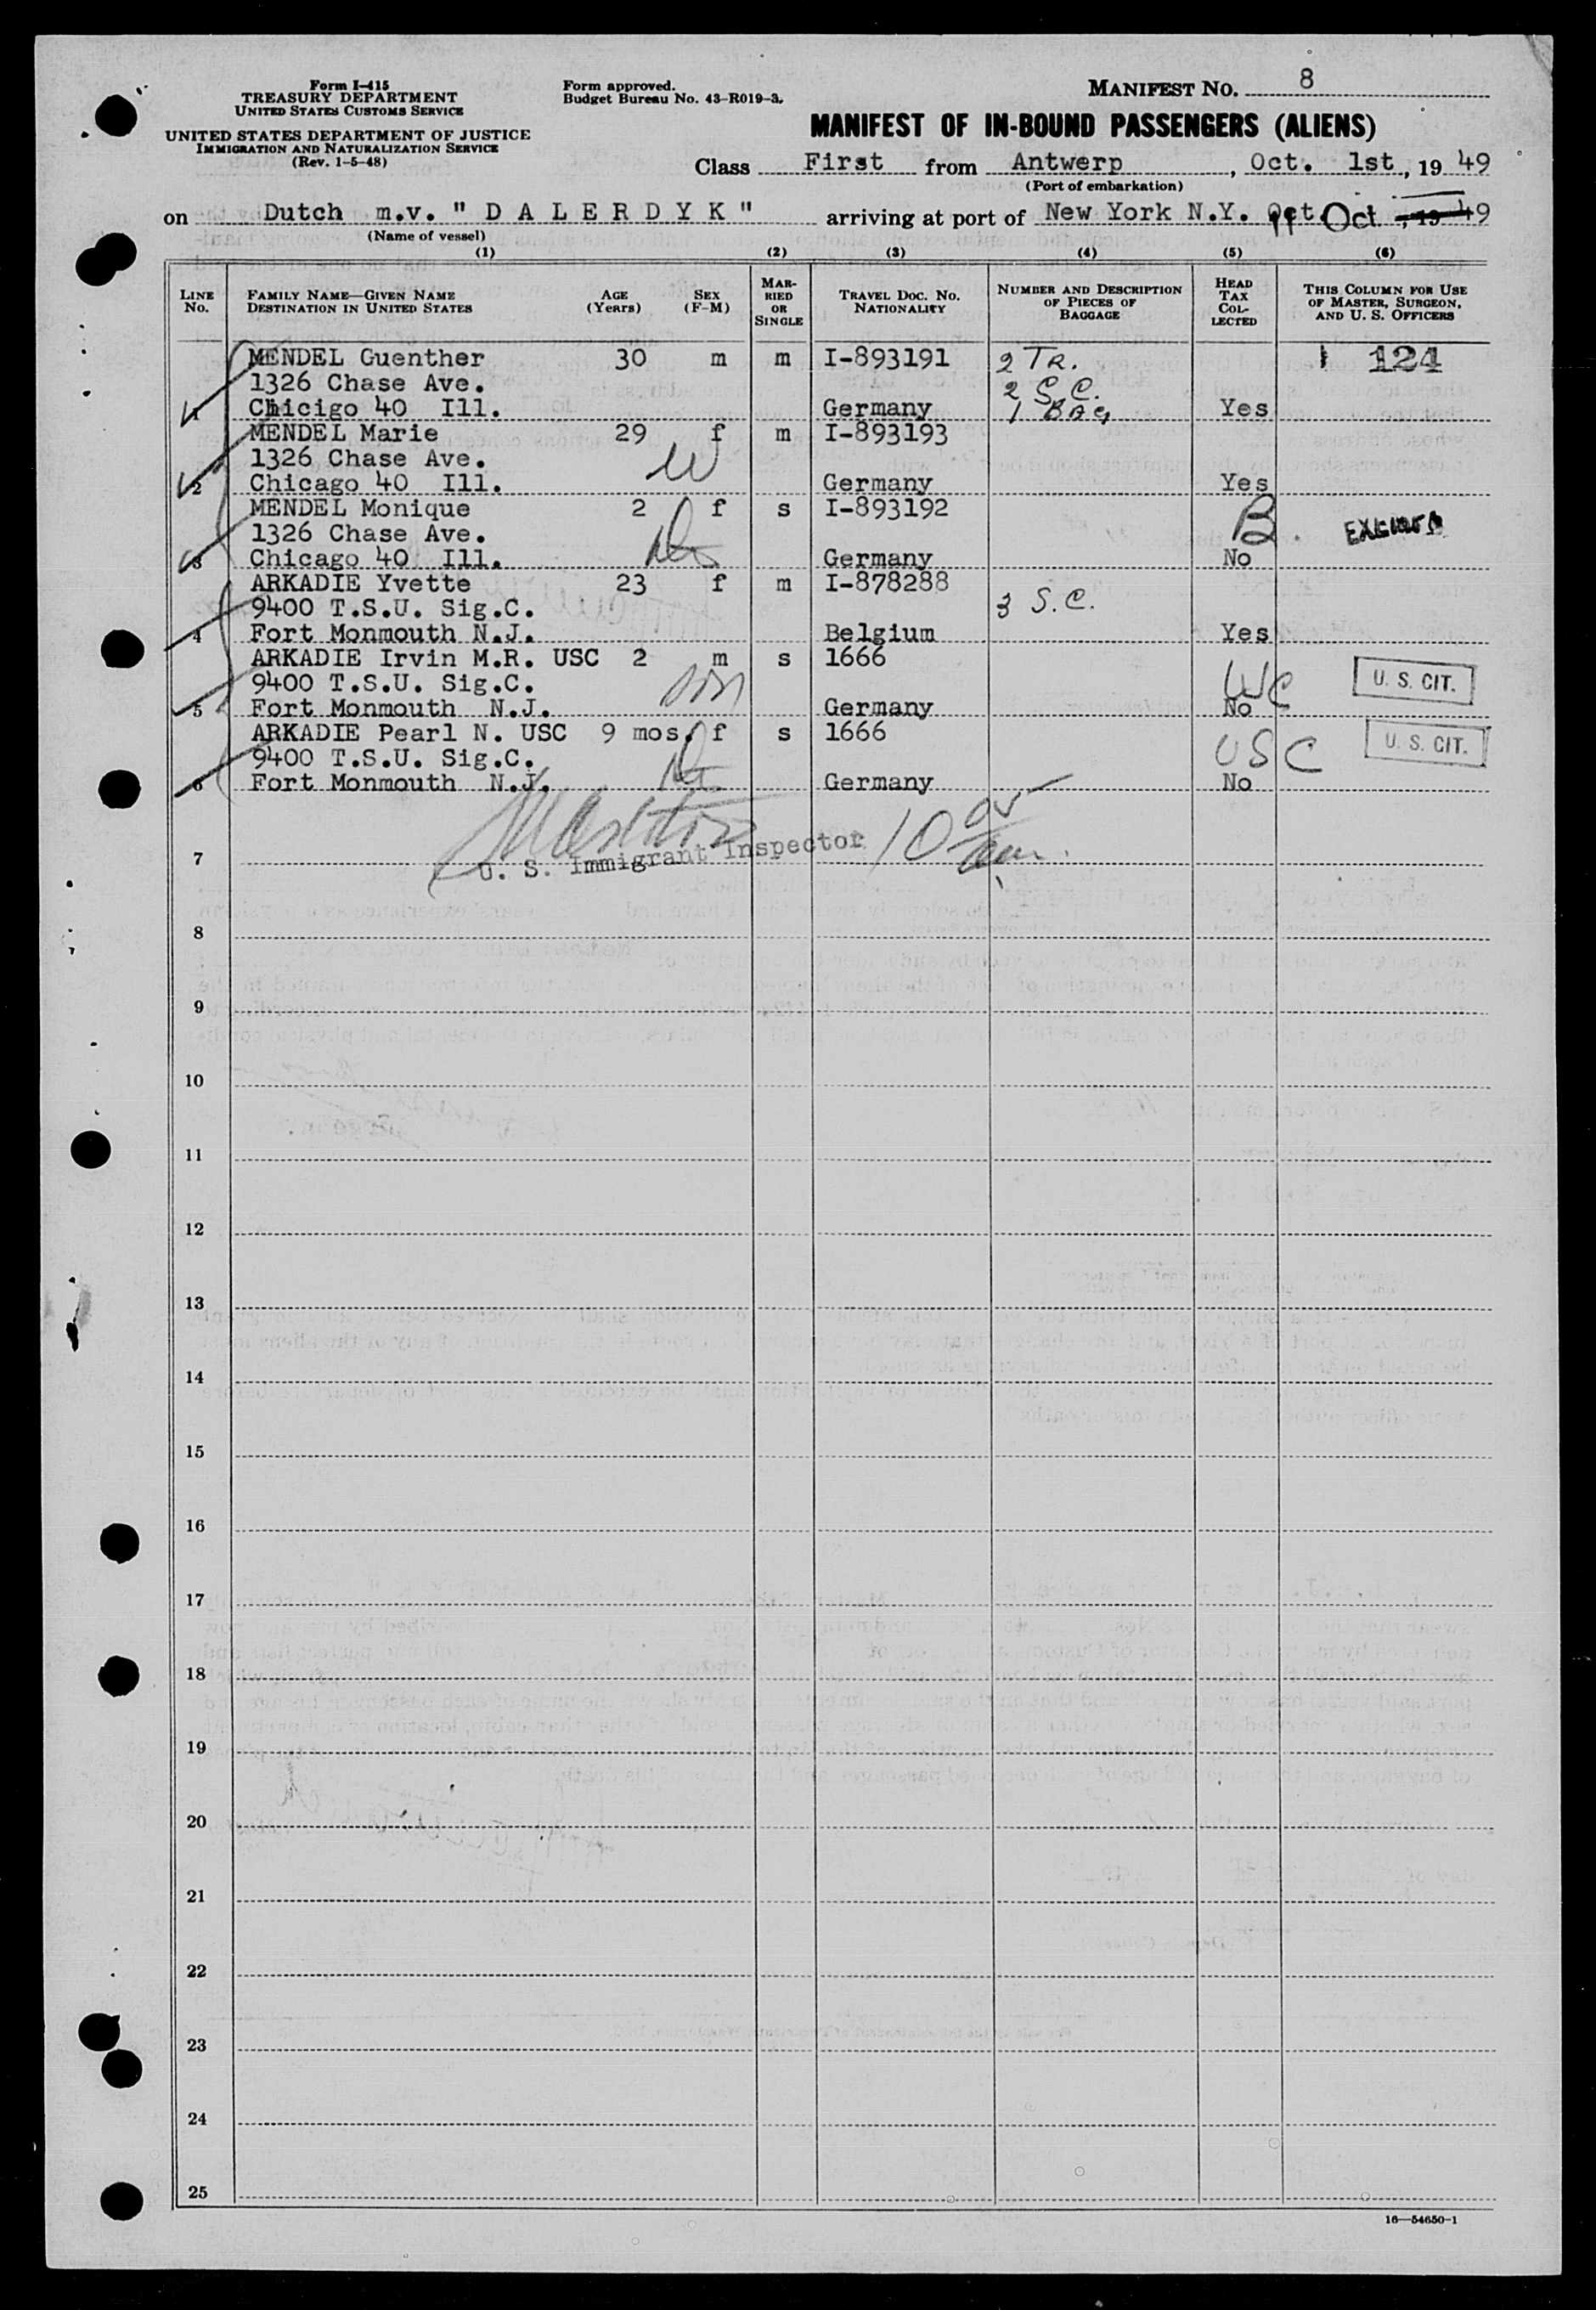 Form I-415
TREASURY DEPARTMENT
UNITED STATES CUSTOMS SERVICE
UNITED STATES DEPARTMENT OF JUSTICE
IMMIGRATION AND NATURALIZATION SERVICE
(Rev. 1-5-48)
Form approved.
Budget Bureau No. 43-R019-3.
MANIFEST NO. 8
MANIFEST OF IN-BOUND PASSENGERS (ALIENS)
Class First from Antwerp, Oct. 1st, 19 49
(Port of embarkation)
on Dutch m.v. " D A L E R D Y K " arriving at port of New York N.Y. Oct Oct , 19 49
(Name of vessel)
(1) (2) (3) (4) (5) (6)
LINE No. FAMILY NAME—GIVEN NAME DESTINATION IN UNITED STATES AGE (YEARS) SEX (F-M) MARRIED OR SINGLE TRAVEL DOC. NO. NATIONALITY NUMBER AND DESCRIPTION OF PIECES OF BAGGAGE HEAD TAX COLLECTED THIS COLUMN FOR USE OF MASTER, SURGEON, AND U. S. OFFICERS
MENDEL Guenther 30 m m I-893191 2 TR. 124
1326 Chase Ave. 2 S.C.
1 Chicigo 40 Ill. Germany 1 BAG Yes
MENDEL Marie 29 f m I-893193
1326 Chase Ave. W
2 Chicago 40 Ill. Germany Yes
MENDEL Monique 2 f s I-892192
1326 Chase Ave. B.
3 Chicago 40 Ill. Germany No
ARKADIE Yvette 23 f m I-878288
9400 T.S.U. Sig.C. 3 S.C.
4 Fort Monmouth N.J. Belgium Yes
ARKADIE Irvin M.R. USC 2 m s 1666
9400 T.S.U. Sig.C. son U. S. CIT.
5 Fort Monmouth N.J. Germany No
ARKADIE Pearl N. USC 9 mos. f s 1666
9400 T.S.U. Sig.C. USC U. S. CIT.
6 Fort Monmouth N.J. Germany No
7 U. S. Immigrant Inspector 10
8
9
10
11
12
13
14
15
16
17
18
19
20
21
22
23
24
25
16—54650-1